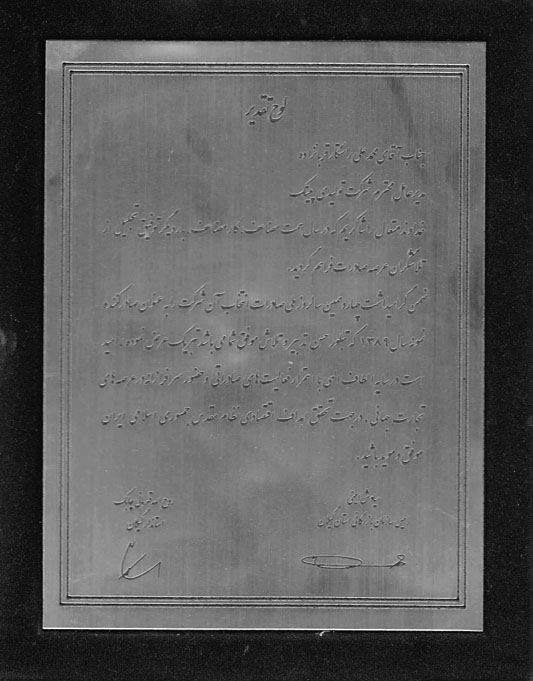 لوح تقدیر
جناب آقای محمد علی رستگار قربانزاده
مدیرعامل محترم شرکت تولیدی چینک
خداوند متعال را شاکریم که در سال همت مضاعف، کار مضاعف، بار دیگر توفیق تجلیل از
تلاشگران عرصه صادرات فراهم گردید.
ضمن گرامیداشت چهاردهمین سالروز ملی صادرات انتخاب آن شرکت را به عنوان صادر کننده
نمونه سال ۱۳۸۹ که تبلور حسن تدبیر و تلاش موفق شما می باشد تبریک عرض نموده، امید
ست در سایه الطاف الهی با استمرار فعالیت های صادراتی و حضور سرافرازانه در عرصه های
تجارت جهانی، در جهت تحقق اهداف اقتصادی نظام مقدس جمهوری اسلامی ایران
موفق و موید باشید.
سیاوش
رئیس سازمان بازرگانی استان گیلان
روح اله قهرمانی چابک
استاندار گیلان